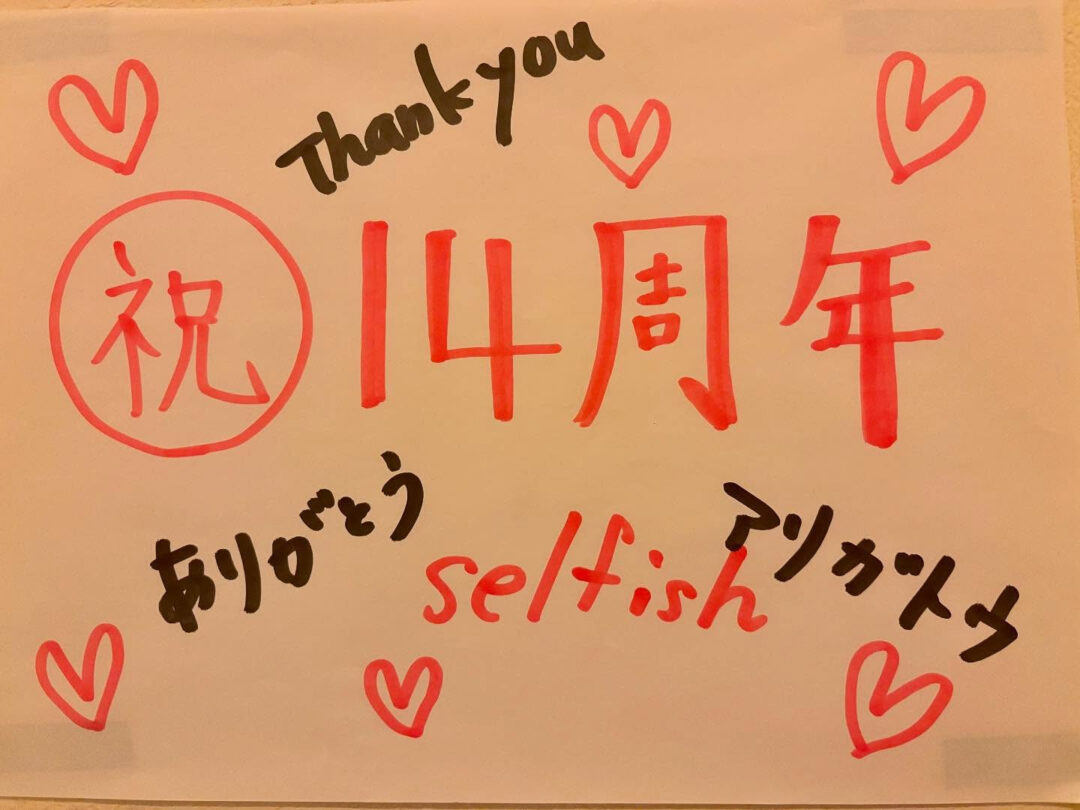 Thank you
祝 14周年
ありがとう
selfish
アリガトウ